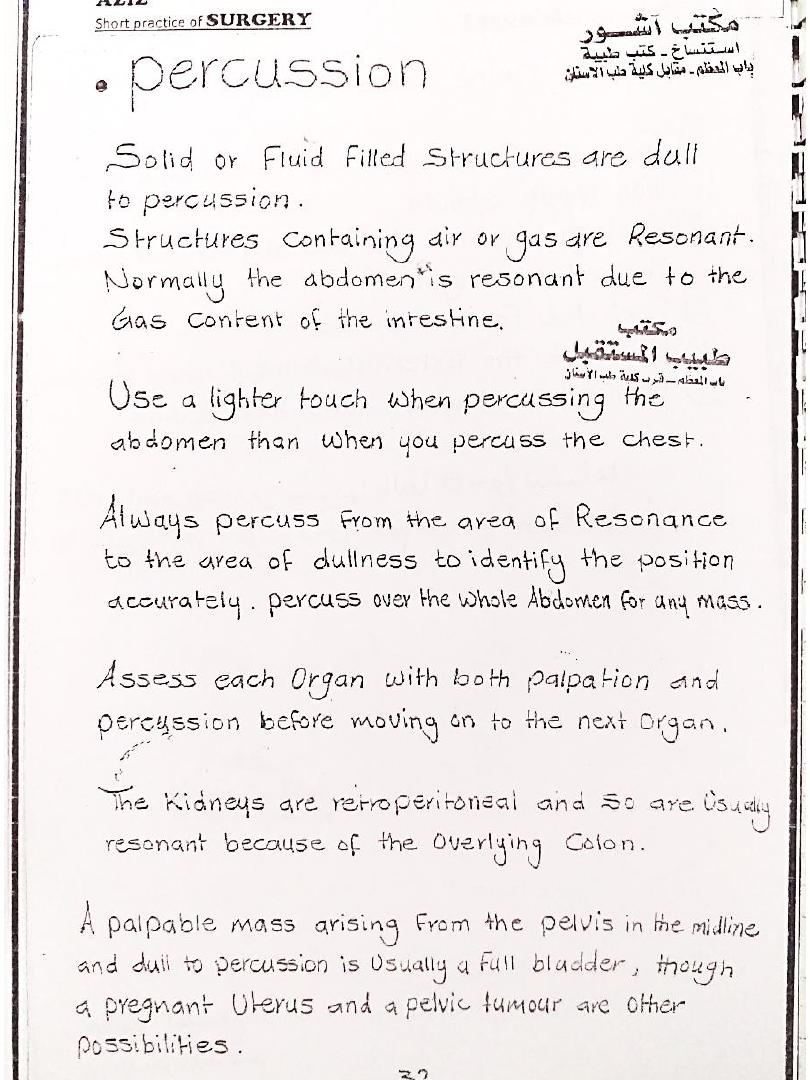 AZIZ
Short practice of SURGERY
مكتب آشور
استنساخ - كتب طبية
باب المعظم - مقابل كلية طب الاسنان
• percussion
Solid or Fluid Filled Structures are dull
to percussion.
Structures Containing air or gas are Resonant.
Normally the abdomen is resonant due to the
Gas Content of the intestine.
مكتب
طبيب المستقبل
باب المعظم - قرب كلية طب الأسنان
Use a lighter touch when percussing the
abdomen than when you percuss the chest.
Always percuss from the area of Resonance
to the area of dullness to identify the position
accurately. percuss over the whole Abdomen for any mass.
Assess each Organ with both palpation and
percussion before moving on to the next Organ.
The Kidneys are retroperitoneal and so are Usually
resonant because of the Overlying Colon.
A palpable mass arising From the pelvis in the midline
and dull to percussion is Usually a full bladder, though
a pregnant Uterus and a pelvic tumour are Other
possibilities.